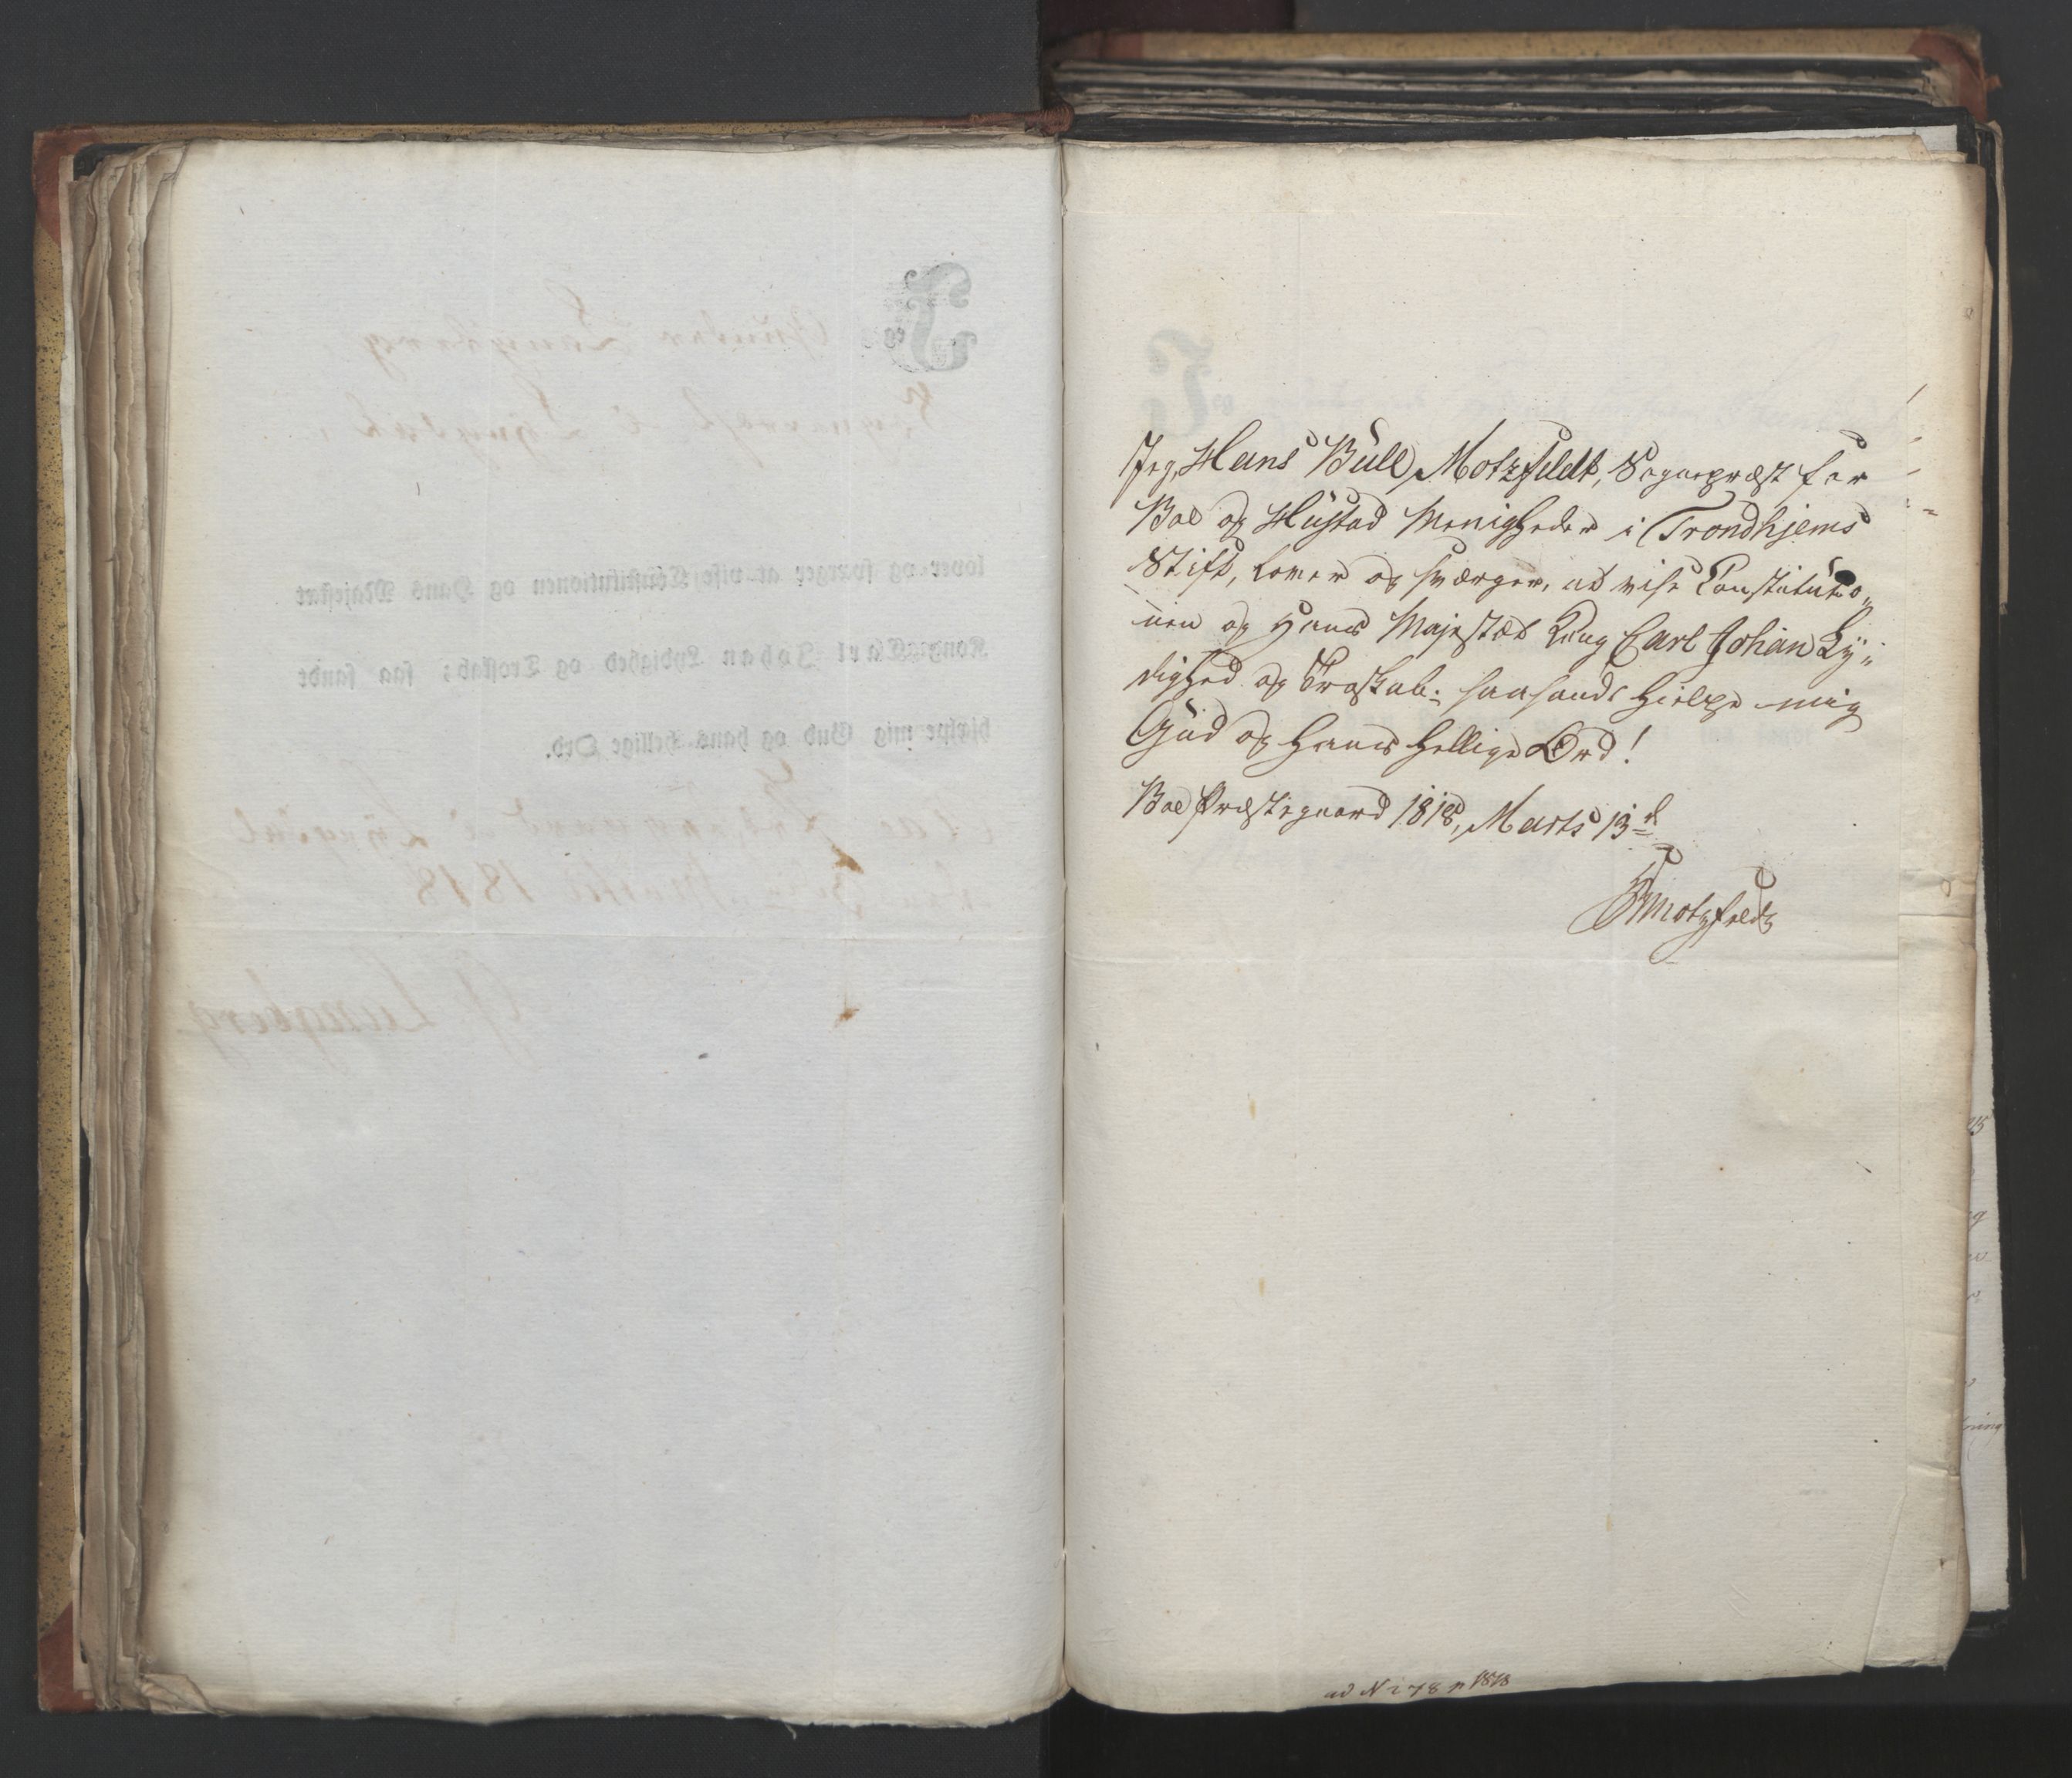 Jeg, Hans Bull Motzfeldt, Sognepræst for
Boe og Hustad Menigheder i Trondhjems
Stift, lover og sværger, at vise Constitutio„
nen og Hans Majestæt Kong Carl Johan Ly„
dighed og Troskab; saa sandt hielpe mig
Gud og Hans hellige Ord!
Boe Præstegaard 1818, Marts 13d
HBMotzfeldt
ad N 278 p 1818